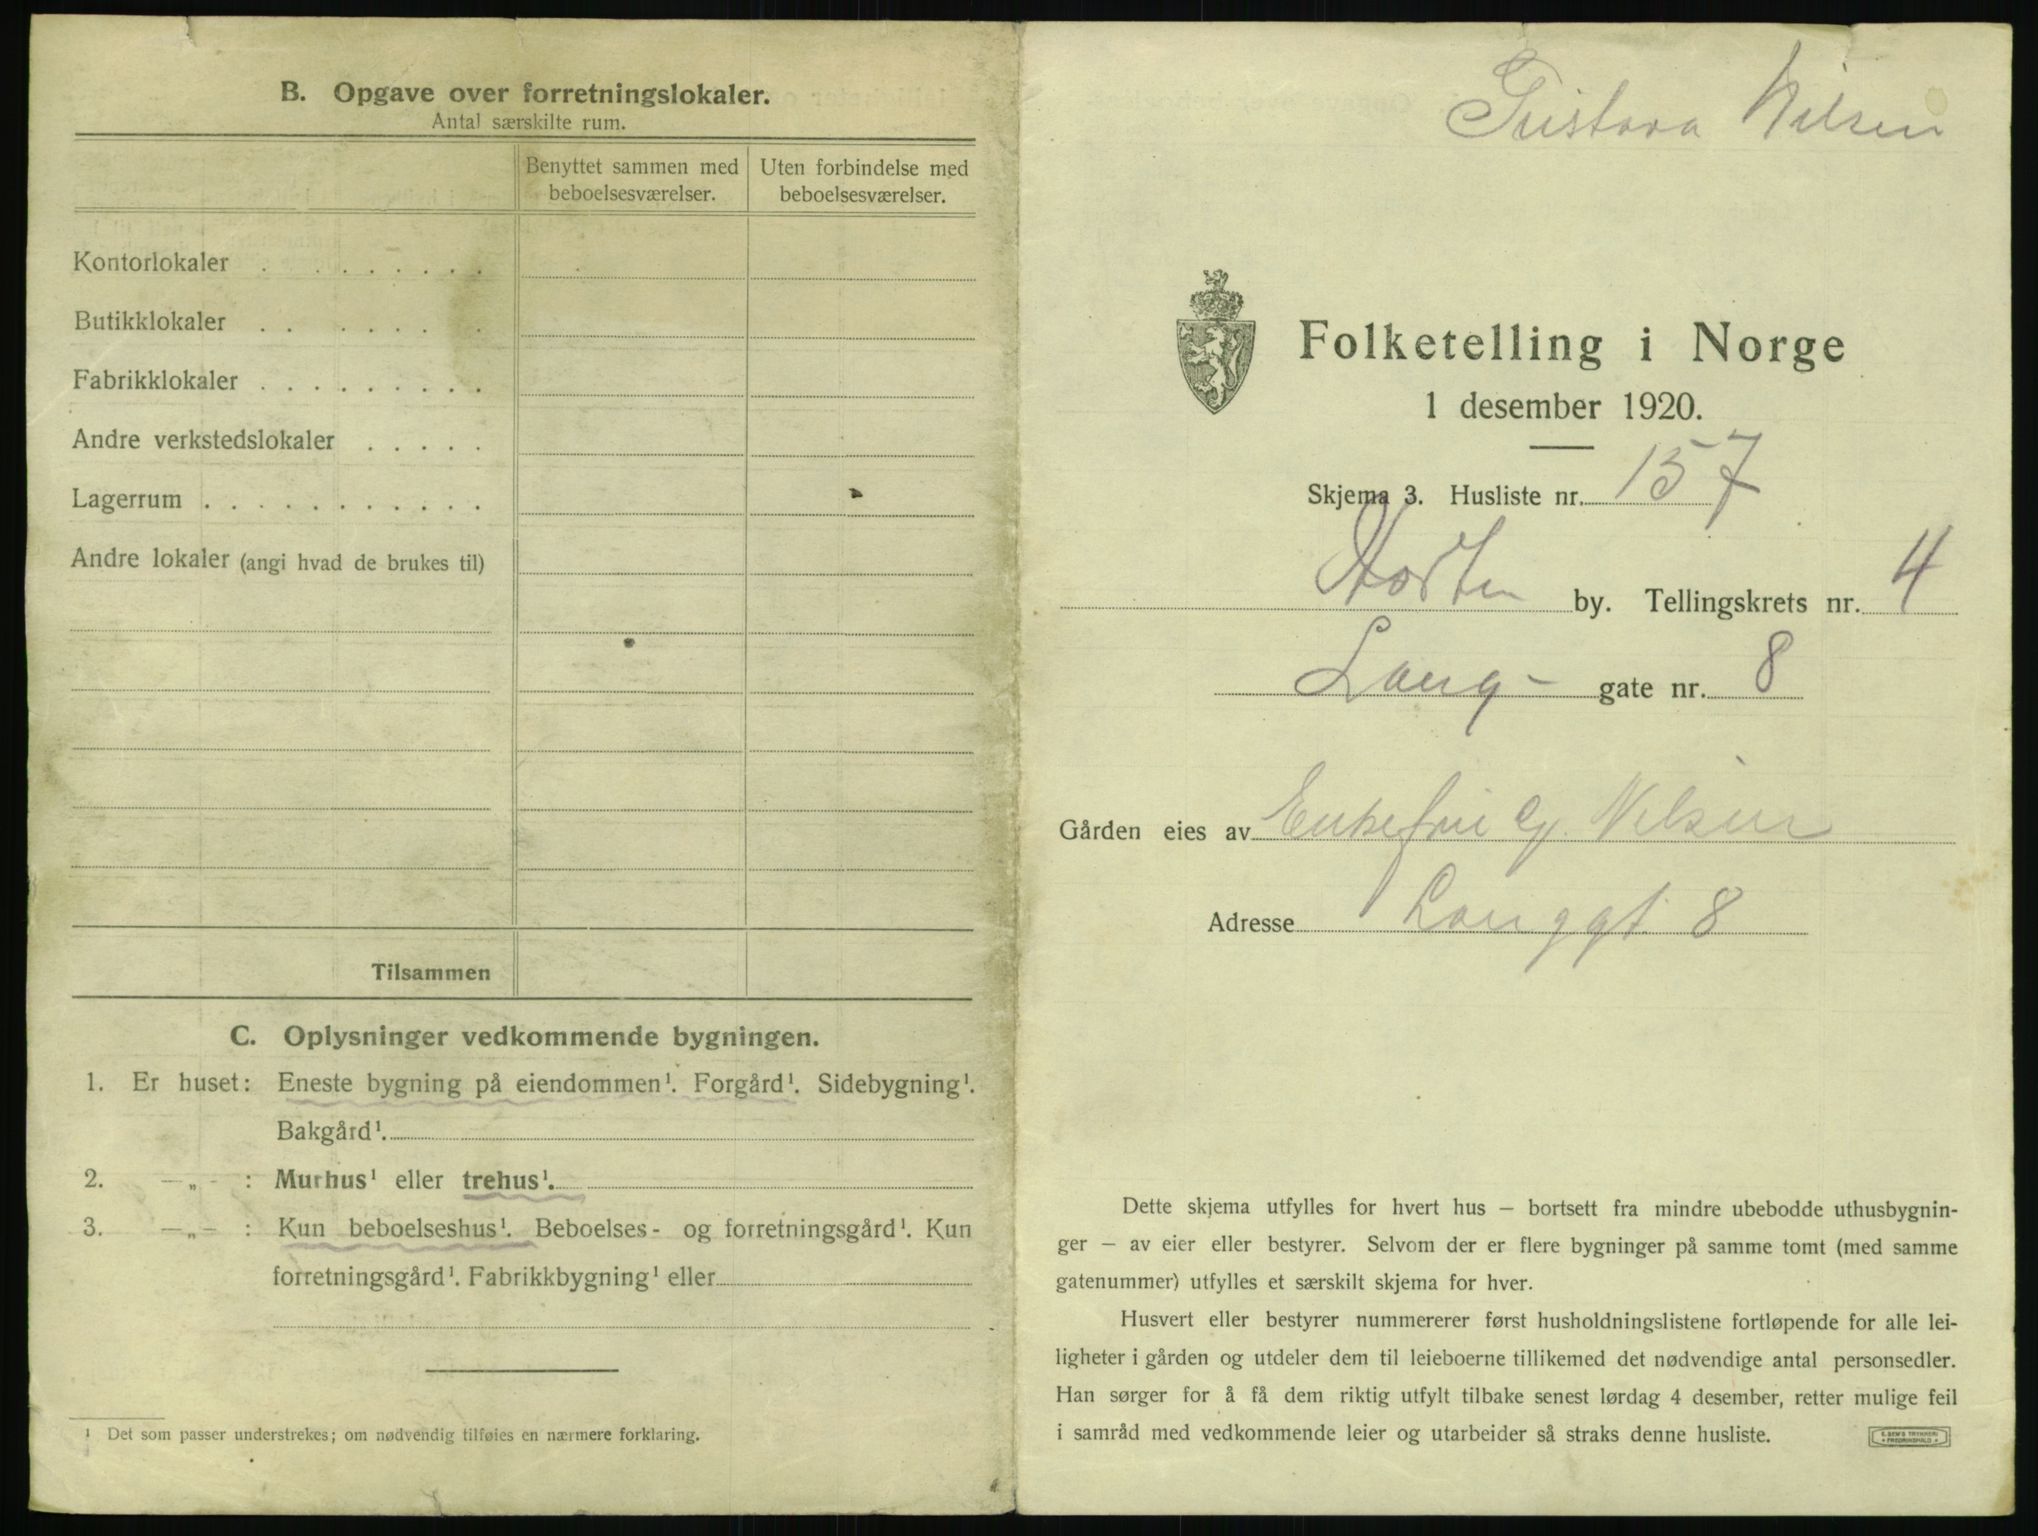 B. Opgave over forretningslokaler.
Antal særskilte rum.
Benyttet sammen med beboelsesværelser.
Uten forbindelse med beboelsesværelser.
Kontorlokaler . . . . . . . .
Butikklokaler . . . . . . .
Fabrikklokaler . . . . . . . . .
Andre verkstedslokaler . . . . .
Lagerrum . . . . . . . . . . .
Andre lokaler (angi hvad de brukes til)
Tilsammen
C. Oplysninger vedkommende bygningen.
1. Er huset: Eneste bygning på eiendommen¹. Forgård¹. Sidebygning¹.
Bakgård¹.
2. —„— : Murhus¹ eller trehus¹.
3. —„— : Kun beboelseshus¹. Beboelses- og forretningsgård¹. Kun
forretningsgård¹. Fabrikkbygning¹ eller
¹ Det som passer understrekes; om nødvendig tilføies en nærmere forklaring.
Gustava Nilsen
Folketelling i Norge
1 desember 1920.
Skjema 3. Husliste nr. 157
Horten by. Tellingskrets nr. 4
Lang- gate nr. 8
Gården eies av Enkefrue G. Nilsen
Adresse Langgt. 8
Dette skjema utfylles for hvert hus – bortsett fra mindre ubebodde uthusbygnin-
ger – av eier eller bestyrer. Selvom der er flere bygninger på samme tomt (med samme
gatenummer) utfylles et særskilt skjema for hver.
Husvert eller bestyrer nummererer først husholdningslistene fortløpende for alle lei-
ligheter i gården og utdeler dem til leieboerne tillikemed det nødvendige antal personsedler.
Han sørger for å få dem riktig utfylt tilbake senest lørdag 4 desember, retter mulige feil
i samråd med vedkommende leier og utarbeider så straks denne husliste.
E. SEM'S TRYKKERI
• FREDRIKSHALD •